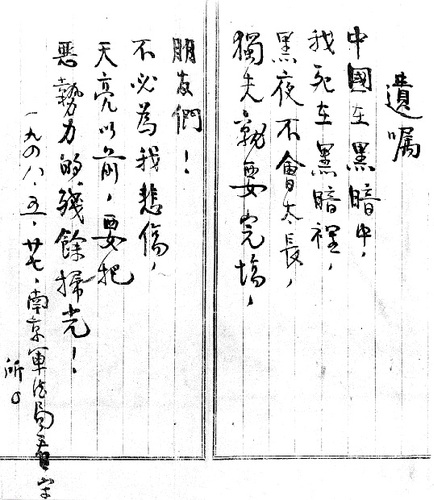 遺嘱
中國在黑暗中，
我死在黑暗裡，
黑夜不會太長，
獨夫就要完塲，
朋友們！
不必為我悲傷，
天亮以前，要把
惡勢力的殘餘掃光！
一九四八．五．廿七．南京軍法局看守
所。